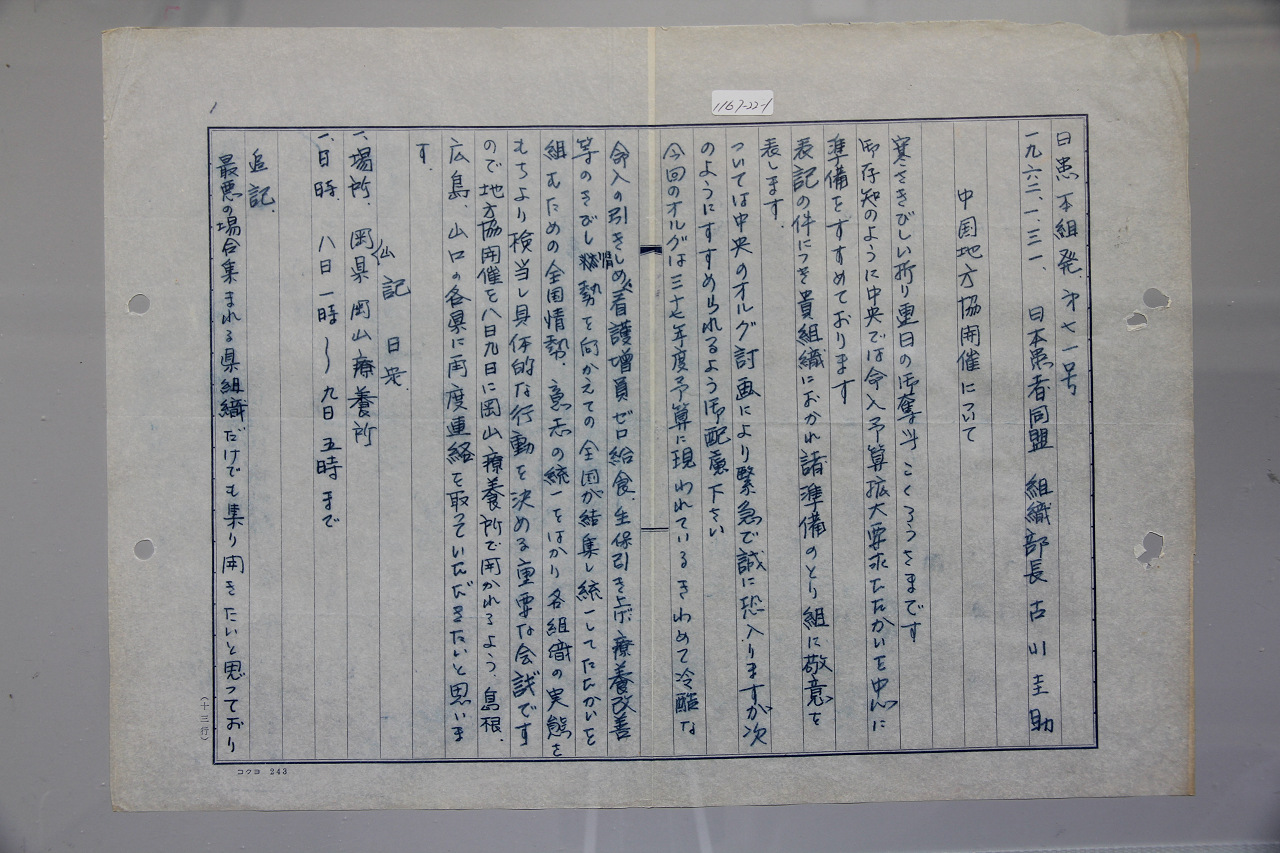 1167-22-1
日患本組発、才七一号
一九六二、一、三一、 日本患者同盟 組織部長 古川圭助
中国地方協開催について
寒さきびしい折り連日の御奮斗ごくろうさまです
御存知のように中央では命入予算拡大要求たたかいを中心に
準備をすすめております
表記の件につき貴組織におかれ諸準備のとり組に敬意を
表します。
ついては中央のオルグ計画により緊急で誠に恐入りますが次
のようにすすめられるよう御配慮下さい
今回のオルグは三十七年度予算に現われているきわめて冷酷な
命入の引きしめ、看護増員ゼロ給食、生保引き上げ、療養改善
等のきびしい情勢を向かえての全国が結集し統一してたたかいを
組むための全国情勢、意志の統一をはかり各組織の実態を
もちより検当し具体的な行動を決める重要な会議です
ので地方協開催を八日九日に岡山療養所で開かれるよう、島根、
広島、山口の各県に再度連絡を取っていただきたいと思いま
す。
記
一、場所、岡県 岡山療養所
一、日時、八日一時〜九日五時まで
追記、
最悪の場合集まれる県組織だけでも集り開きたいと思っており
1
(十三行)
コクヨ 243